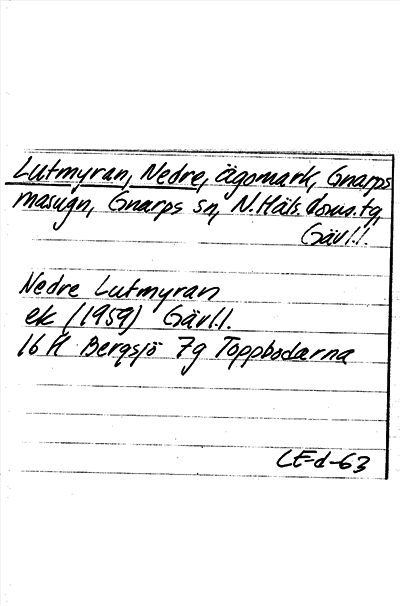 Lutmyran, Nedre, ägomark, Gnarps
masugn, Gnarps sn, N.Häls. doms.tg,
Gävl.l.
Nedre Lutmyran
ek (1959) Gävl.l.
16 H Bergsjö 7g Toppbodarna
LE-d-63